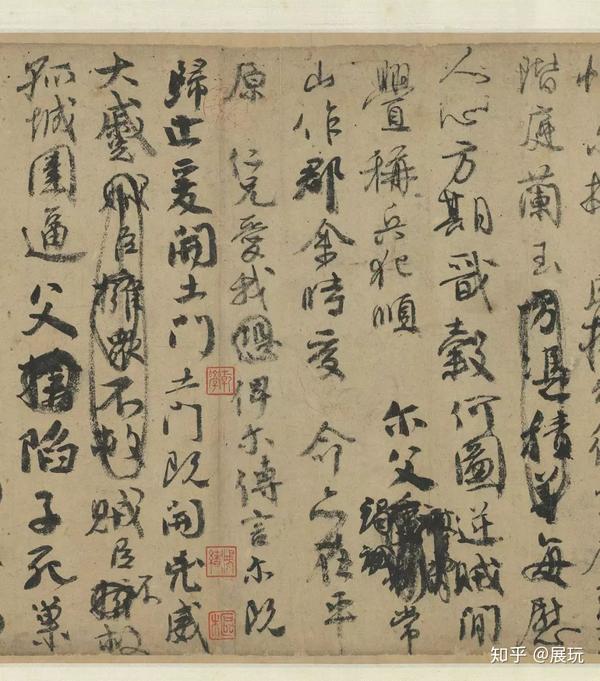 階庭蘭玉方憑積善每慰
人心方期戩穀何圖逆賊閒
舋稱兵犯順尔父竭誠常
山作郡余時受命亦在平
原仁兄愛我恐俾尔傳言尔既
歸止爰開土門土門既開凶威
大蹙賊臣擁衆不救賊臣不救
孤城圍逼父陷子死巢
知乎 @展玩